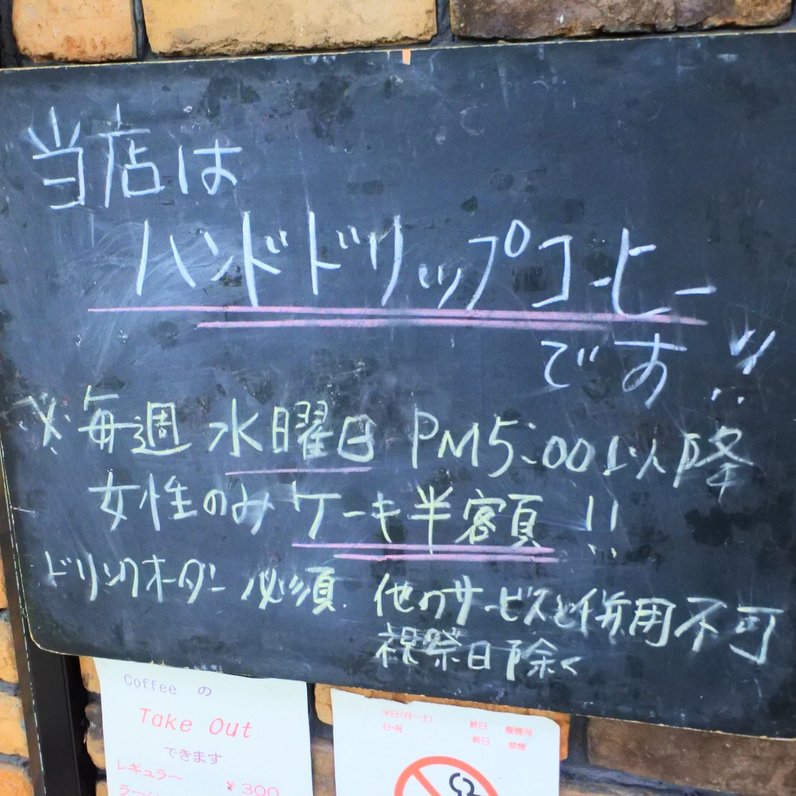 当店は
ハンドドリップコーヒー
です!!
※毎週 水曜日 PM5:00以降
女性のみケーキ半額!!
ドリンクオーダー必須. 他のサービスと併用不可
祝祭日除く
Coffee の
Take Out
できます
レギュラー ¥300
平日(月~土) 終日 喫煙可
日・祝 終日 禁煙